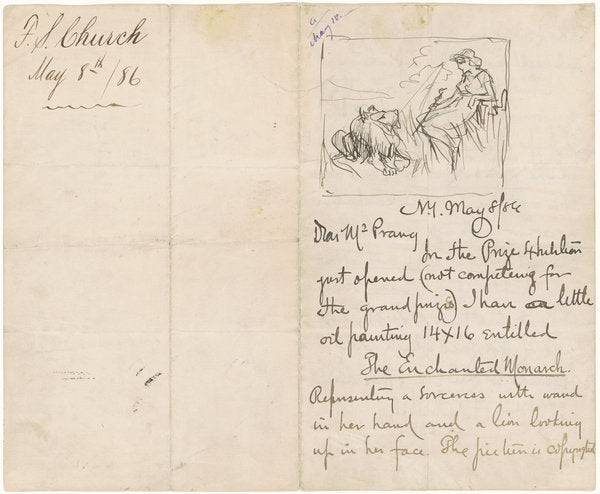 F. S. Church
May 8th/86
a
May 10.
N.Y. May 8/86
Dear Mr Prang
In the Prize Exhibition
just opened (not competeing for
the grand prizes) I have a little
oil painting 14X16 entitled
The Enchanted Monarch.
Representing a Sorceress with wand
in her hand and a lion looking
up in her face. The picture is copyrighted